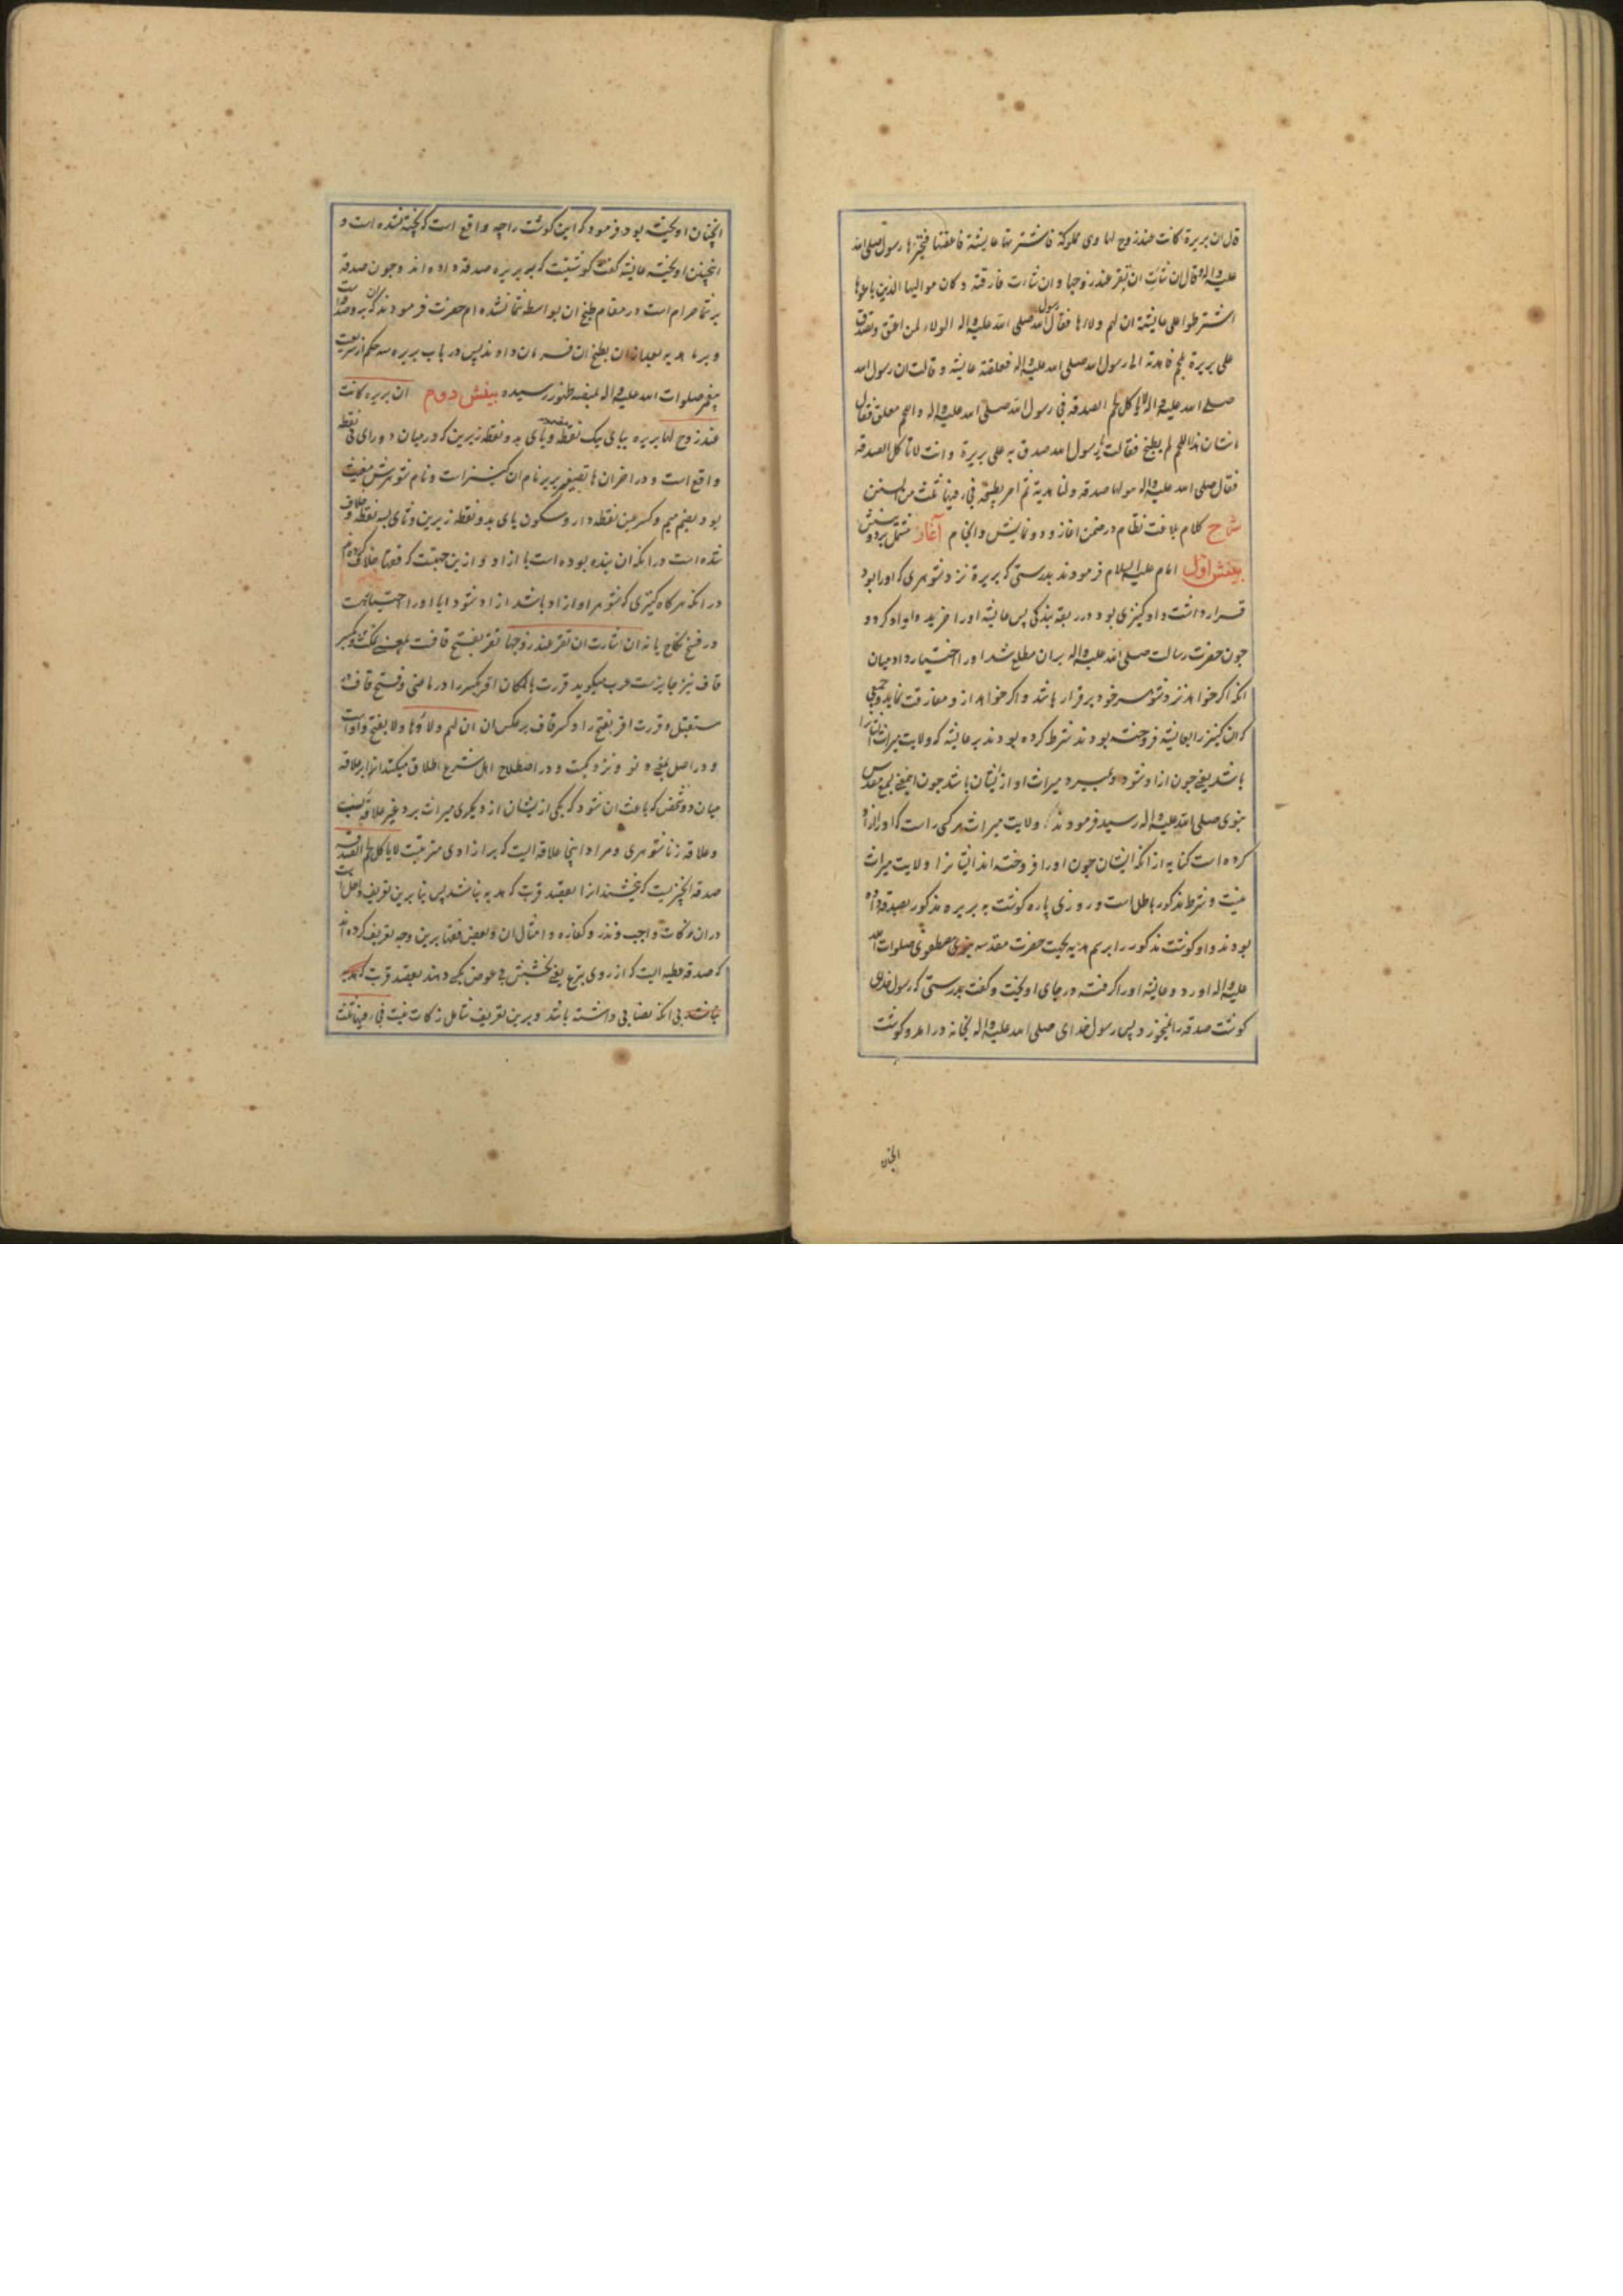 قال ان بریرة کانت عند زوج لها وهی مملوکة فاشترتها عایشة فاعتقتها فخیّرها رسول الله صلی الله
علیه واله وقال ان شاءت ان تقر عند زوجها وان شاءت فارقته وکان موالیها الذین باعوها
اشترطوا علی عایشة ان لهم ولاءها فقال رسول الله صلی الله علیه واله الولاء لمن اعتق وتصدق
علی بریرة بلحم فاهدته الی رسول الله صلی الله علیه واله فعلقته عایشه وقالت ان رسول الله
صلی الله علیه واله لا یاکل لحم الصدقه فجاء رسول الله صلی الله علیه واله واللحم معلق فقال
ما شان هذا اللحم لم یطبخ فقالت یا رسول الله صدق به علی بریرة وانت لا تاکل الصدقه
فقال صلی الله علیه واله هو لها صدقه ولنا هدیة ثم امر بطبخه فجاء فیها ثلث من السنن
شرح کلام بلاغت نظام در ضمن اغاز و دو نمایش و انجام آغاز مشتمل بر دو بینش
بینش اول امام علیه السلام فرمودند بدرستی که بریرة نزد شوهری که اورا بود
قرار داشت و او کنیزی بود در ربقه بندکی پس عایشه اورا خرید و ازاد کرد و
چون حضرت رسالت صلی الله علیه واله بران مطلع شد اورا اختیار داد میان
انکه اکر خواهد نزد شوهر خود برقرار باشد و اکر خواهد ازو مفارقت نماید و جمعی
که ان کنیز را بعایشه فروخته بودند شرط کرده بودند بر عایشه که ولایت میراث ایشانرا
باشد یعنی چون ازاد شود و بمیرد میراث او از ایشان باشد چون اینمعنی بسمع مقدس
نبوی صلی الله علیه واله رسید فرمودند که ولایت میراث هر کسی راست که اورا ازاد
کرده است کنایه از انکه ایشان چون اورا فروخته اند ایشانرا ولایت میراث
نیست و شرط مذکور باطل است و روزی پاره کوشت به بریره مذکور بصدقه داده
بودند و او کوشت مذکور را برسم هدیه بجهت حضرت مقدسه نبوی مصطفوی صلوات الله
علیه واله اورد و عایشه اورا کرفته در جای اویخت و کفت بدرستی که رسول خدای
کوشت صدقه را نمیخورد پس رسول خدای صلی الله علیه واله بخانه درامد و کوشت
انچنان
انچنان اویخته بود فرمود که این کوشت را چه واقع است که پخته نشده است و
اینچنین اویخته عایشه کفت کوشتیست که به بریره صدقه داده اند و چون صدقه
بر شما حرام است در مقام طبخ ان بواسطه شما نشده ام حضرت فرمودند که ان بر و صدقه است
و بر ما هدیه بعد ازان بطبخ ان فرمان دادند پس در باب بریره سه حکم از شریعت
پیغمبر صلوات الله علیه واله بمنصه ظهور رسیده بینش دوم ان بریره کانت
عند زوج لها بریره ببای یک نقطه و یای بدو نقطه زیرین که در میان دو رای بی نقطه
واقع است و در اخران ها تصغیر بریر نام ان کنیز است و نام شوهرش مغیث
بود بضم میم و کسر غین نقطه دار و سکون یای بدو نقطه زیرین و ثای بسه نقطه و خلاف
شده است در انکه ان بنده بوده است یا ازاد و ازین جهتست که فقها خلاف کرده اند
در انکه هرکاه کنیزی که شوهر او ازاد باشد ازاد شود ایا اورا اختیار هست
در فسخ نکاح یا نه ان شاءت ان تقر عند زوجها تقر بفتح قافست بمعنی تمکث و بکسر
قاف نیز جایزست عرب میکوید قررت بالمکان اقر بکسر را در ماضی و فتح قاف در
مستقبل و قررت اقر بفتح را و کسر قاف بر عکس ان ان لهم ولاؤها ولا بفتح واو است
و در اصل بمعنی دنو و نزدیکیست و در اصطلاح اهل شرع اطلاق میکنند انرا بر علاقه
میان دو شخص که باعث ان شود که یکی از ایشان از دیکری میراث برد غیر علاقه نسب
و علاقه زناشوهری و مراد اینجا علاقه ایست که بر ازادی مترتبست لا یاکل لحم الصدقه
صدقه انچیزیست که بخشند انرا بقصد قربت که هدیه نباشد پس بنا برین تعریف داخل است
دران زکات واجب و نذر و کفاره و امثال ان و بعضی فقها برین وجه تعریف کرده اند
که صدقه عطیه ایست که از روی تبرع یعنی بخشش بی عوض بکسی دهند بقصد قربت که هدیه
نباشد بی انکه نصابی داشته باشد و برین تعریف شامل زکات نیست فجاء فیها ثلث